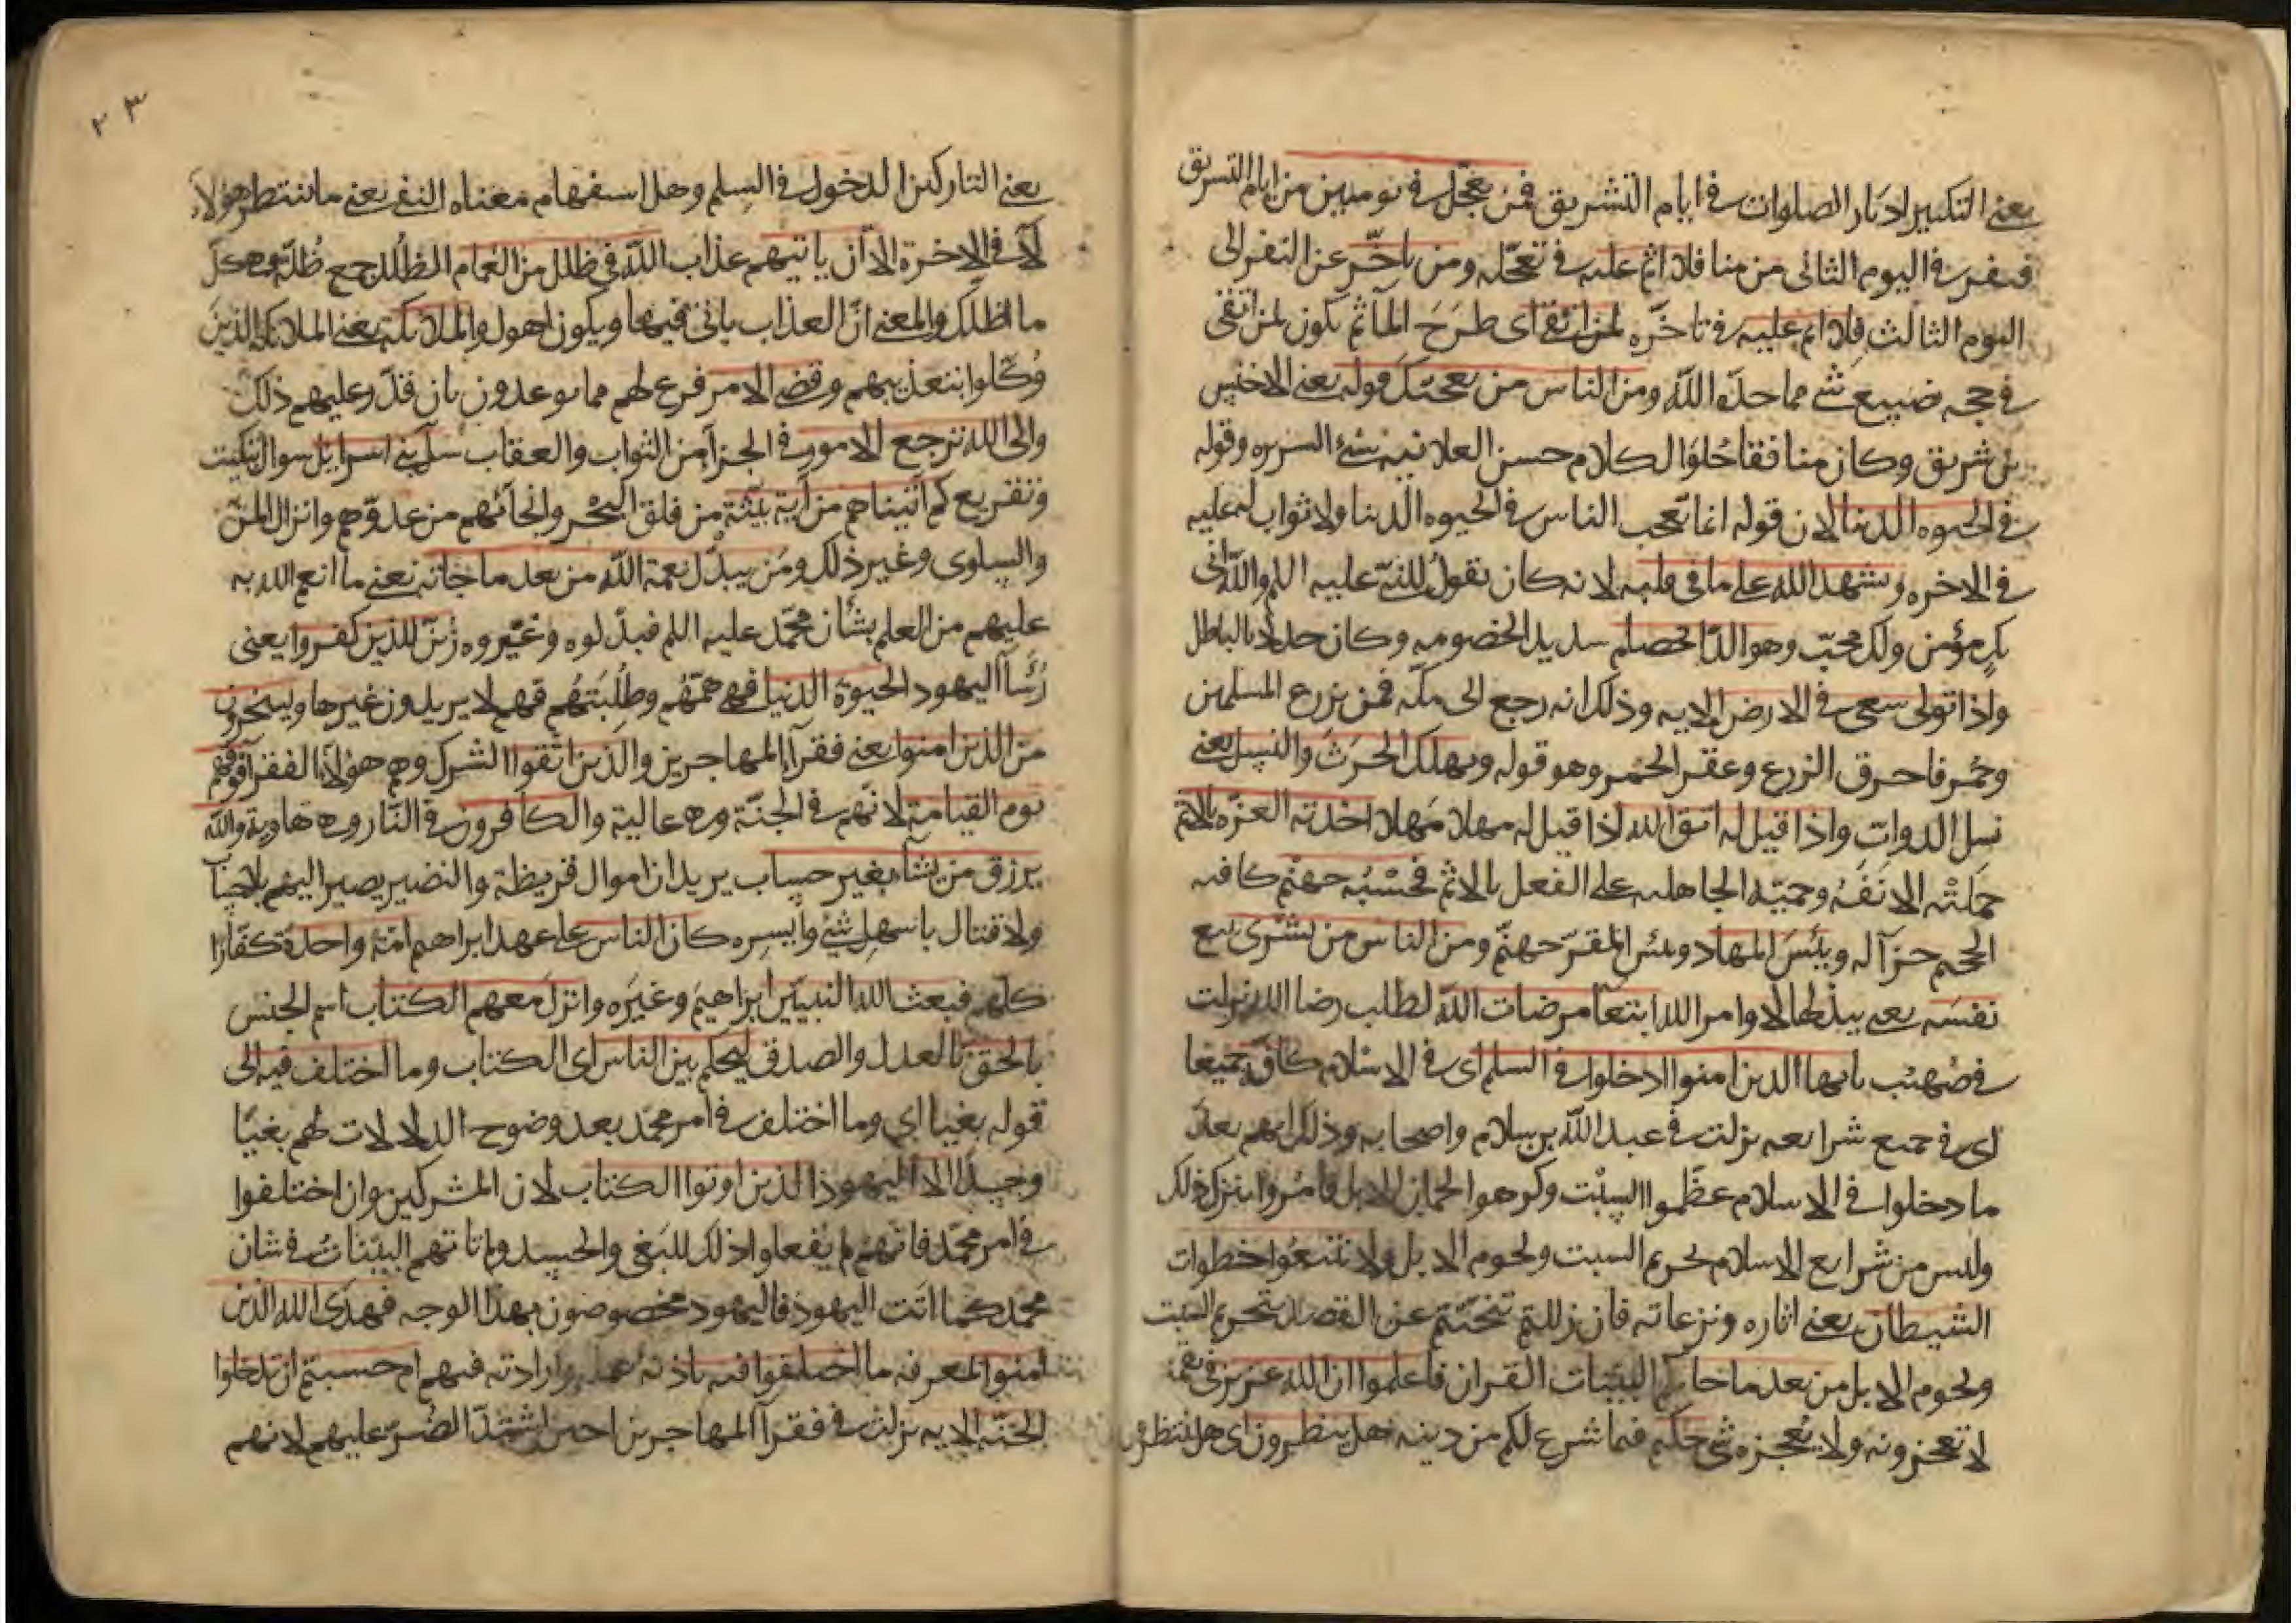 يعني التكبير ادبار الصلوات في ايام التشريق فمن تعجل في يومين من ايام التشريق
فنفر في اليوم الثاني من منا فلا اثم عليه في تعجله ومن تاخر عن النفر الى
اليوم الثالث فلا اثم عليه في تاخره لمن اتقى اى طرح المآثم يكون لمن اتقى
في حجه تضييع شي مما حده الله ومن الناس من يعجبك قوله يعني الاخنس
بن شريق وكان منافقا حلو الكلام حسن العلانيه سئ السريره وقوله
في الحيوه الدنيا لان قوله انما تعجب الناس في الحيوه الدنيا ولا ثواب له عليه
في الاخره ويشهد الله على ما في قلبه لانه كان يقول للنبي عليه السلم والله انى
بك مؤمن ولك محب وهو الد الخصام سديد الخصومه وكان جدلا بالباطل
واذا تولى سعى في الارض الايه وذلك انه رجع الى مكه فمر بزرع المسلمين
وحمر فاحرق الزرع وعقر الحمر وهو قوله ويهلك الحرث والنسل يعني
نسل الدواب واذا قيل له اتق الله اذا قيل له مهلا مهلا اخذته العزه بالاثم
حملته الانفه وحميه الجاهليه على الفعل بالاثم فحسبه جهنم كافيه
الجحيم جزآ له وبئس المهاد وبئس المقر جهنم ومن الناس من يشرى يبيع
نفسه يعني يبذلها لاوامر الله ابتغآ مرضات الله لطلب رضا الله نزلت
في صهيب يايها الذين امنوا ادخلوا في السلم اى في الاسلام كافة جميعا
اى في جميع شرايعه نزلت في عبد الله بن سلام واصحابه وذلك انهم بعد
ما دخلوا في الاسلام عظموا السبت وكرهوا لحمان الابل فامروا بترك ذلك
وليس من شرايع الاسلام تحريم السبت ولحوم الابل ولا تتبعوا خطوات
الشيطان يعني اثاره ونزغاته فان زللتم تنحيتم عن القصد بتحريم السبت
ولحوم الابل من بعد ما جاتكم البينات القران فاعلموا ان الله عزيز في نقمته
لا تعجزونه ولا يعجزه شي حكيم فيما شرع لكم من دينه هل ينظرون اى هل ينتظرون
٣٣
يعني التاركين الدخول في السلم وهل استفهام معناه النفي يعني ما ينتظر هؤلاء
لآ في الاخرة الا ان ياتيهم عذاب الله في ظلل من الغمام الظلل جمع ظلة وهي كل
ما اظلك والمعني ان العذاب ياتى فيها ويكون اهول والملائكة يعني الملائكة الذين
وكلوا بتعذيبهم وقضى الامر فرغ لهم مما يوعدون بان قدر عليهم ذلك
والى الله ترجع الامور في الجزآ من الثواب والعقاب سل بنى اسرايل سوال تبكيت
وتقريع كم اتيناهم من آية بينة من فلق البحر وانجآئهم من عدوهم وانزال المن
والسلوى وغير ذلك ومن يبدل نعمة الله من بعد ما جاته يعني ما انعم الله به
عليهم من العلم بشأن محمد عليه السلم فبدلوه وغيروه زين للذين كفروا يعني
رؤسآ اليهود الحيوة الدنيا فهى همتهم وطلبتهم فهم لا يريدون غيرها ويسخرون
من الذين امنوا يعني فقرآ المهاجرين والذين اتقوا الشرك وهم هؤلآ الفقرآ فوقهم
يوم القيامة لانهم في الجنة وهي عالية والكافرون في النار وهي هاوية والله
يرزق من يشآ بغير حساب يريد ان اموال قريظة والنضير يصير اليهم بلا حساب
ولا قتال باسهل شئ وايسره كان الناس على عهد ابراهيم امة واحدة كفارا
كلهم فبعث الله النبيين ابراهيم وغيره وانزل معهم الكتاب اسم الجنس
بالحق بالعدل والصدق ليحكم بين الناس اى الكتاب وما اختلف فيه الى
قوله بغيا اي وما اختلف في امر محمد بعد وضوح الدلالات لهم بغيا
وحسدا الا اليهود الذين اوتوا الكتاب لان المشركين وان اختلفوا
في امر محمد فانهم لم يفعلوا ذلك للبغي والحسد ولم تاتهم البينات في شان
محمد كما اتت اليهود فاليهود مخصوصون بهذا الوجه فهدى الله الذين
امنوا لمعرفة ما اختلفوا فيه باذنه بعلمه وارادته فيهم ام حسبتم ان تدخلوا
الجنة الايه نزلت في فقرآ المهاجرين احين اشتد الضر عليهم لانهم